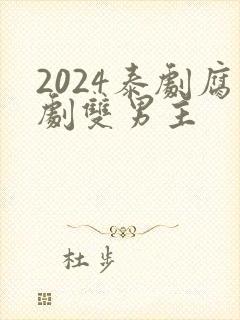 2024泰劇腐
劇雙男主
杜步